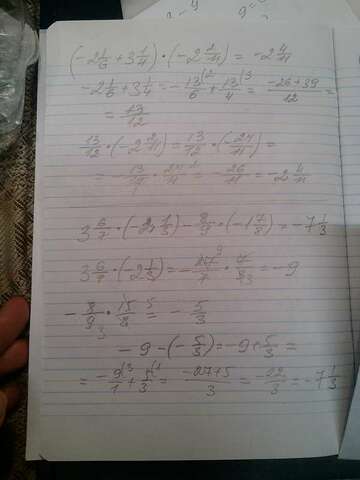 (-2 1/6 + 3 1/4) · (-2 2/11) = -2 4/11
-2 1/6 + 3 1/4 = -13/6 + 13/4 = (-26+39)/12 =
= 13/12
13/12 · (-2 2/11) = 13/12 · (-24/11) =
= -13/12 · 24/11 = -26/11 = -2 4/11
3 6/7 · (-2 1/3) - 8/9 · (-1 7/8) = -7 1/3
3 6/7 · (-2 1/3) = -27/7 · 7/3 = -9
-8/9 · 15/8 = -5/3
-9 - (-5/3) = -9 + 5/3 =
= -9/1 + 5/3 = (-27+5)/3 = -22/3 = -7 1/3